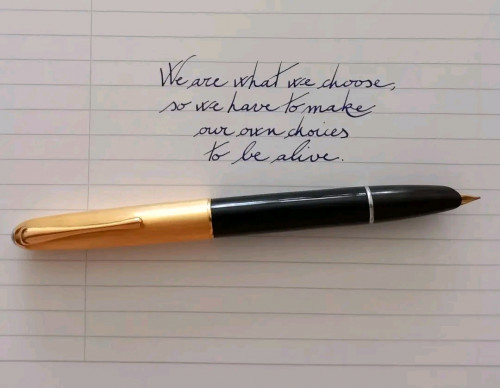 We are what we choose,
so we have to make
our own choices
to be alive.